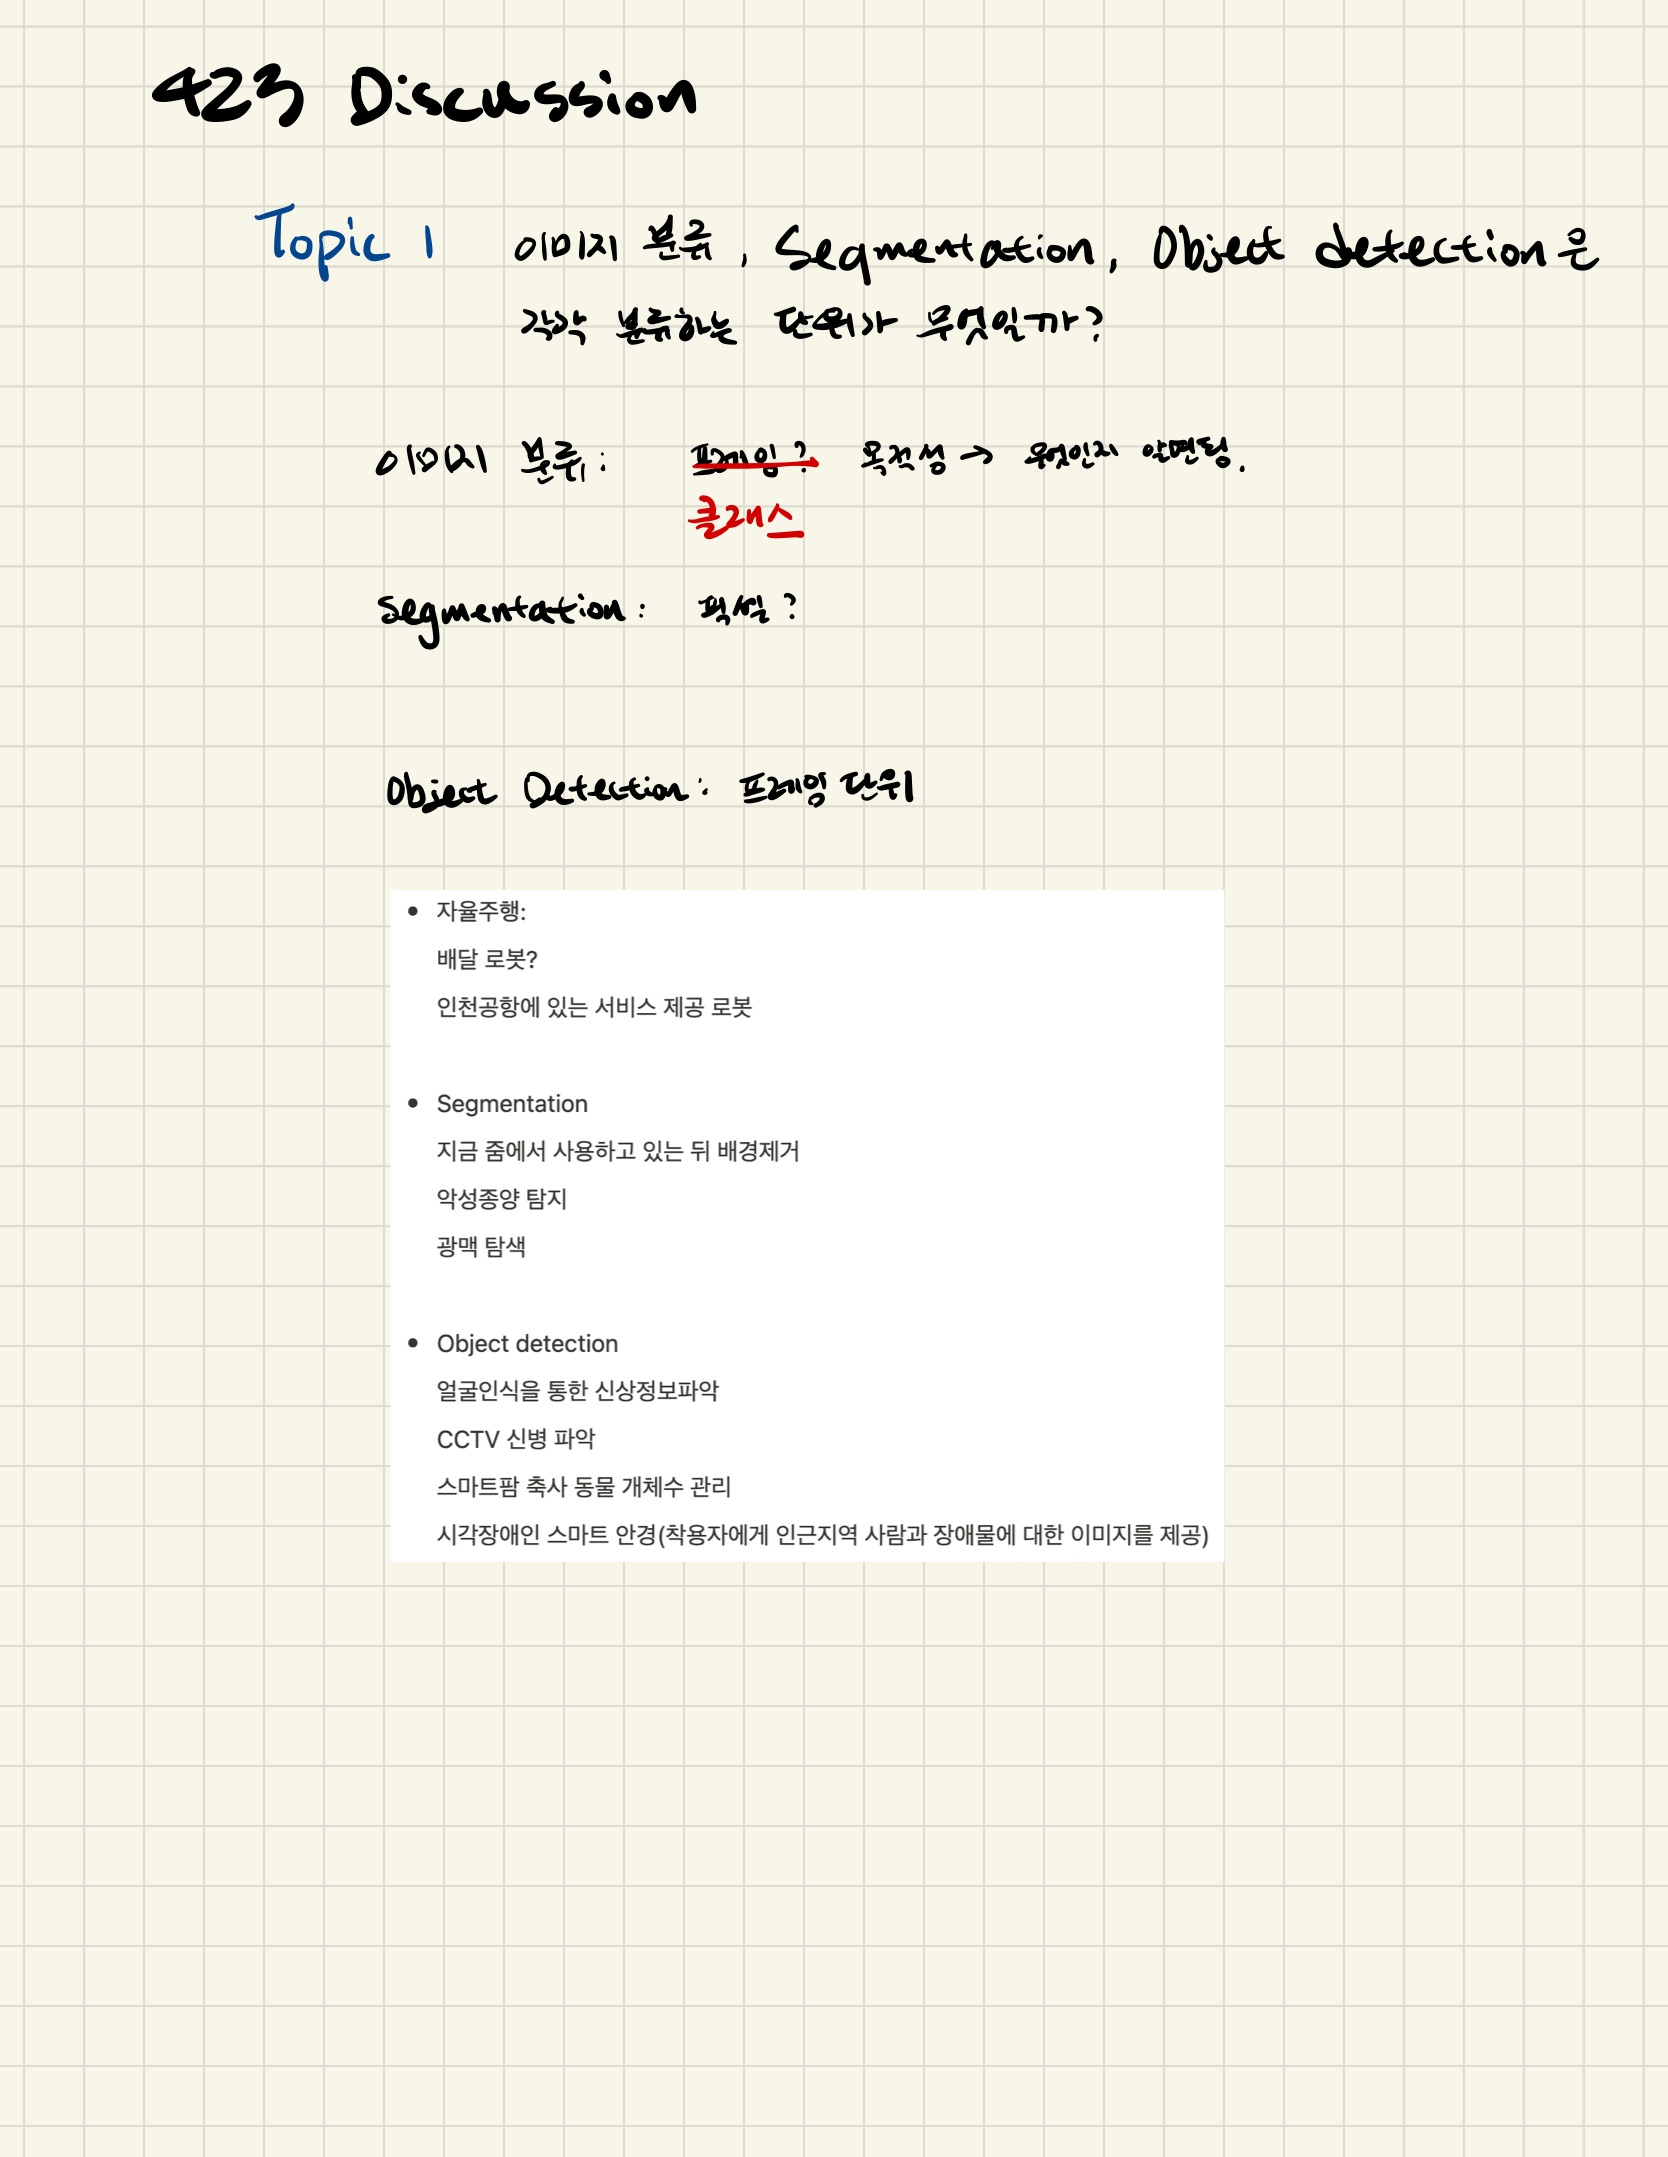 423 Discussion
Topic 1 이미지 분류, Segmentation, Object detection은
각각 분류하는 단위가 무엇일까?
이미지 분류: 프레임? 목적성 → 무엇인지 알면됨.
클래스
Segmentation: 픽셀?
Object Detection: 프레임 단위
• 자율주행:
배달 로봇?
인천공항에 있는 서비스 제공 로봇
• Segmentation
지금 줌에서 사용하고 있는 뒤 배경제거
악성종양 탐지
광맥 탐색
• Object detection
얼굴인식을 통한 신상정보파악
CCTV 신병 파악
스마트팜 축사 동물 개체수 관리
시각장애인 스마트 안경(착용자에게 인근지역 사람과 장애물에 대한 이미지를 제공)